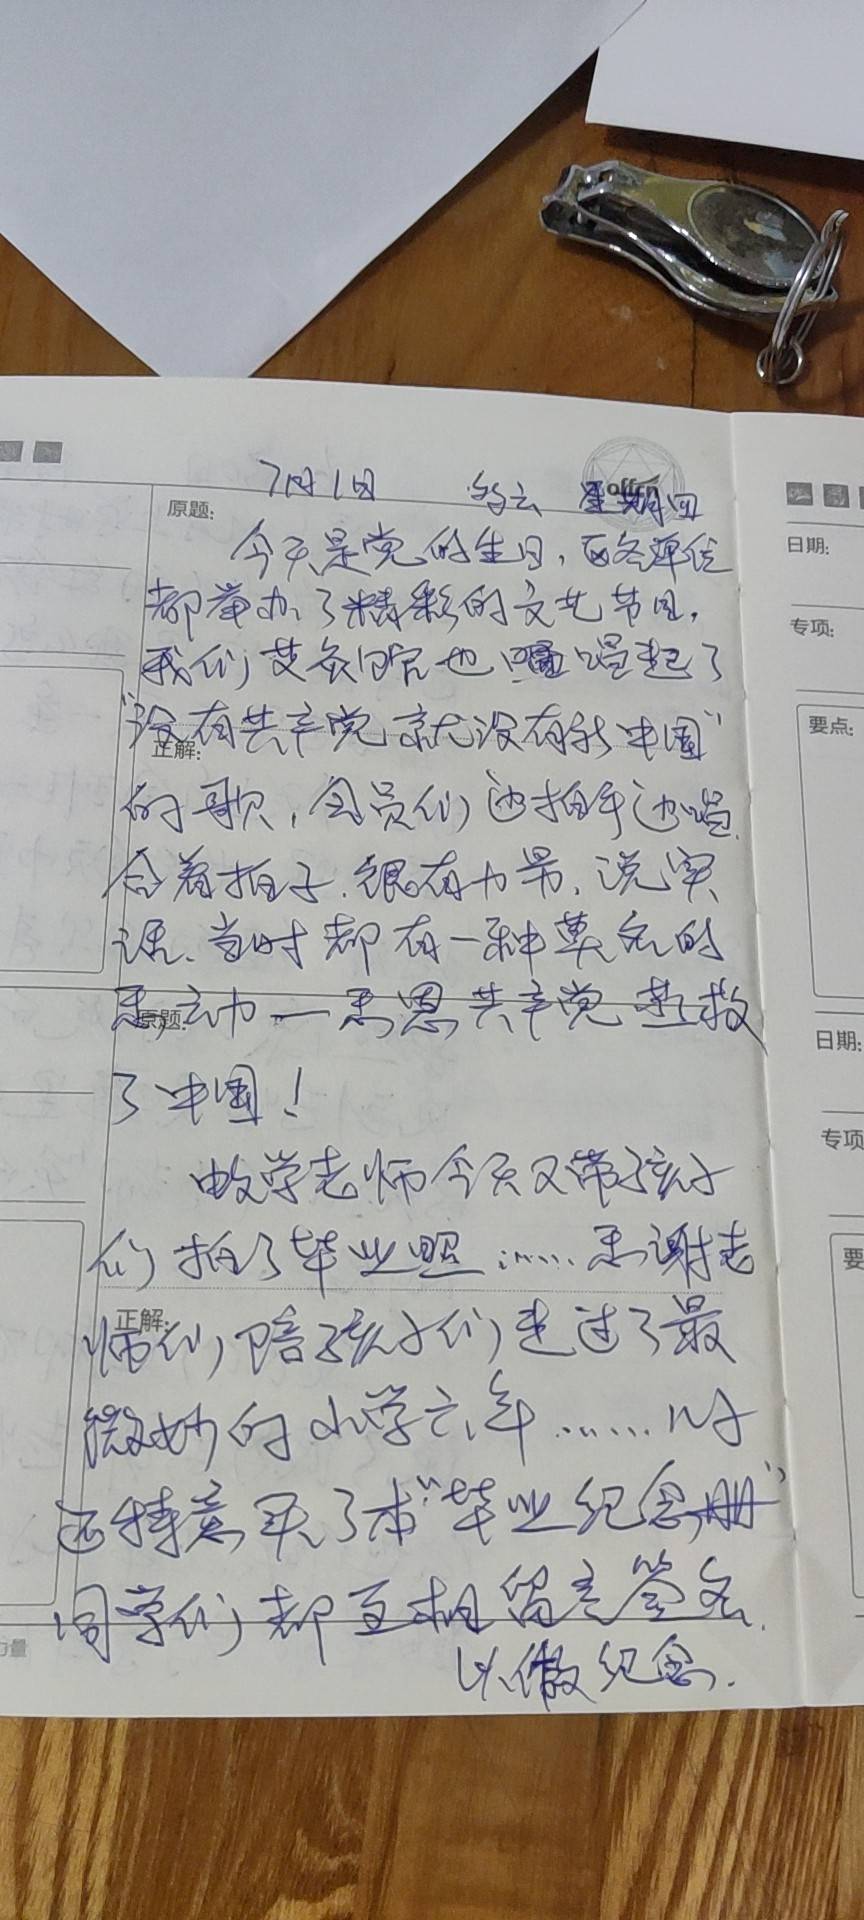 offcn
7月1日 多云 星期四
原题:
今天是党的生日，各单位
都举办了精彩的文艺节目，
我们艾灸馆也唱起了
“没有共产党就没有新中国”
正解:
的歌，会员们边拍手边唱，
合着拍子，很有力量，说实
话，当时都有一种莫名的
感动—感恩共产党拯救
原题:
了中国！
数学老师今天又带孩子
们拍了毕业照……感谢老
师们陪孩子们走过了最
正解:
微妙的小学六年……儿子
还特意买了本“毕业纪念册”
同学们都互相留言签名，
以做纪念.
日期:
专项:
要点:
日期:
专项
要